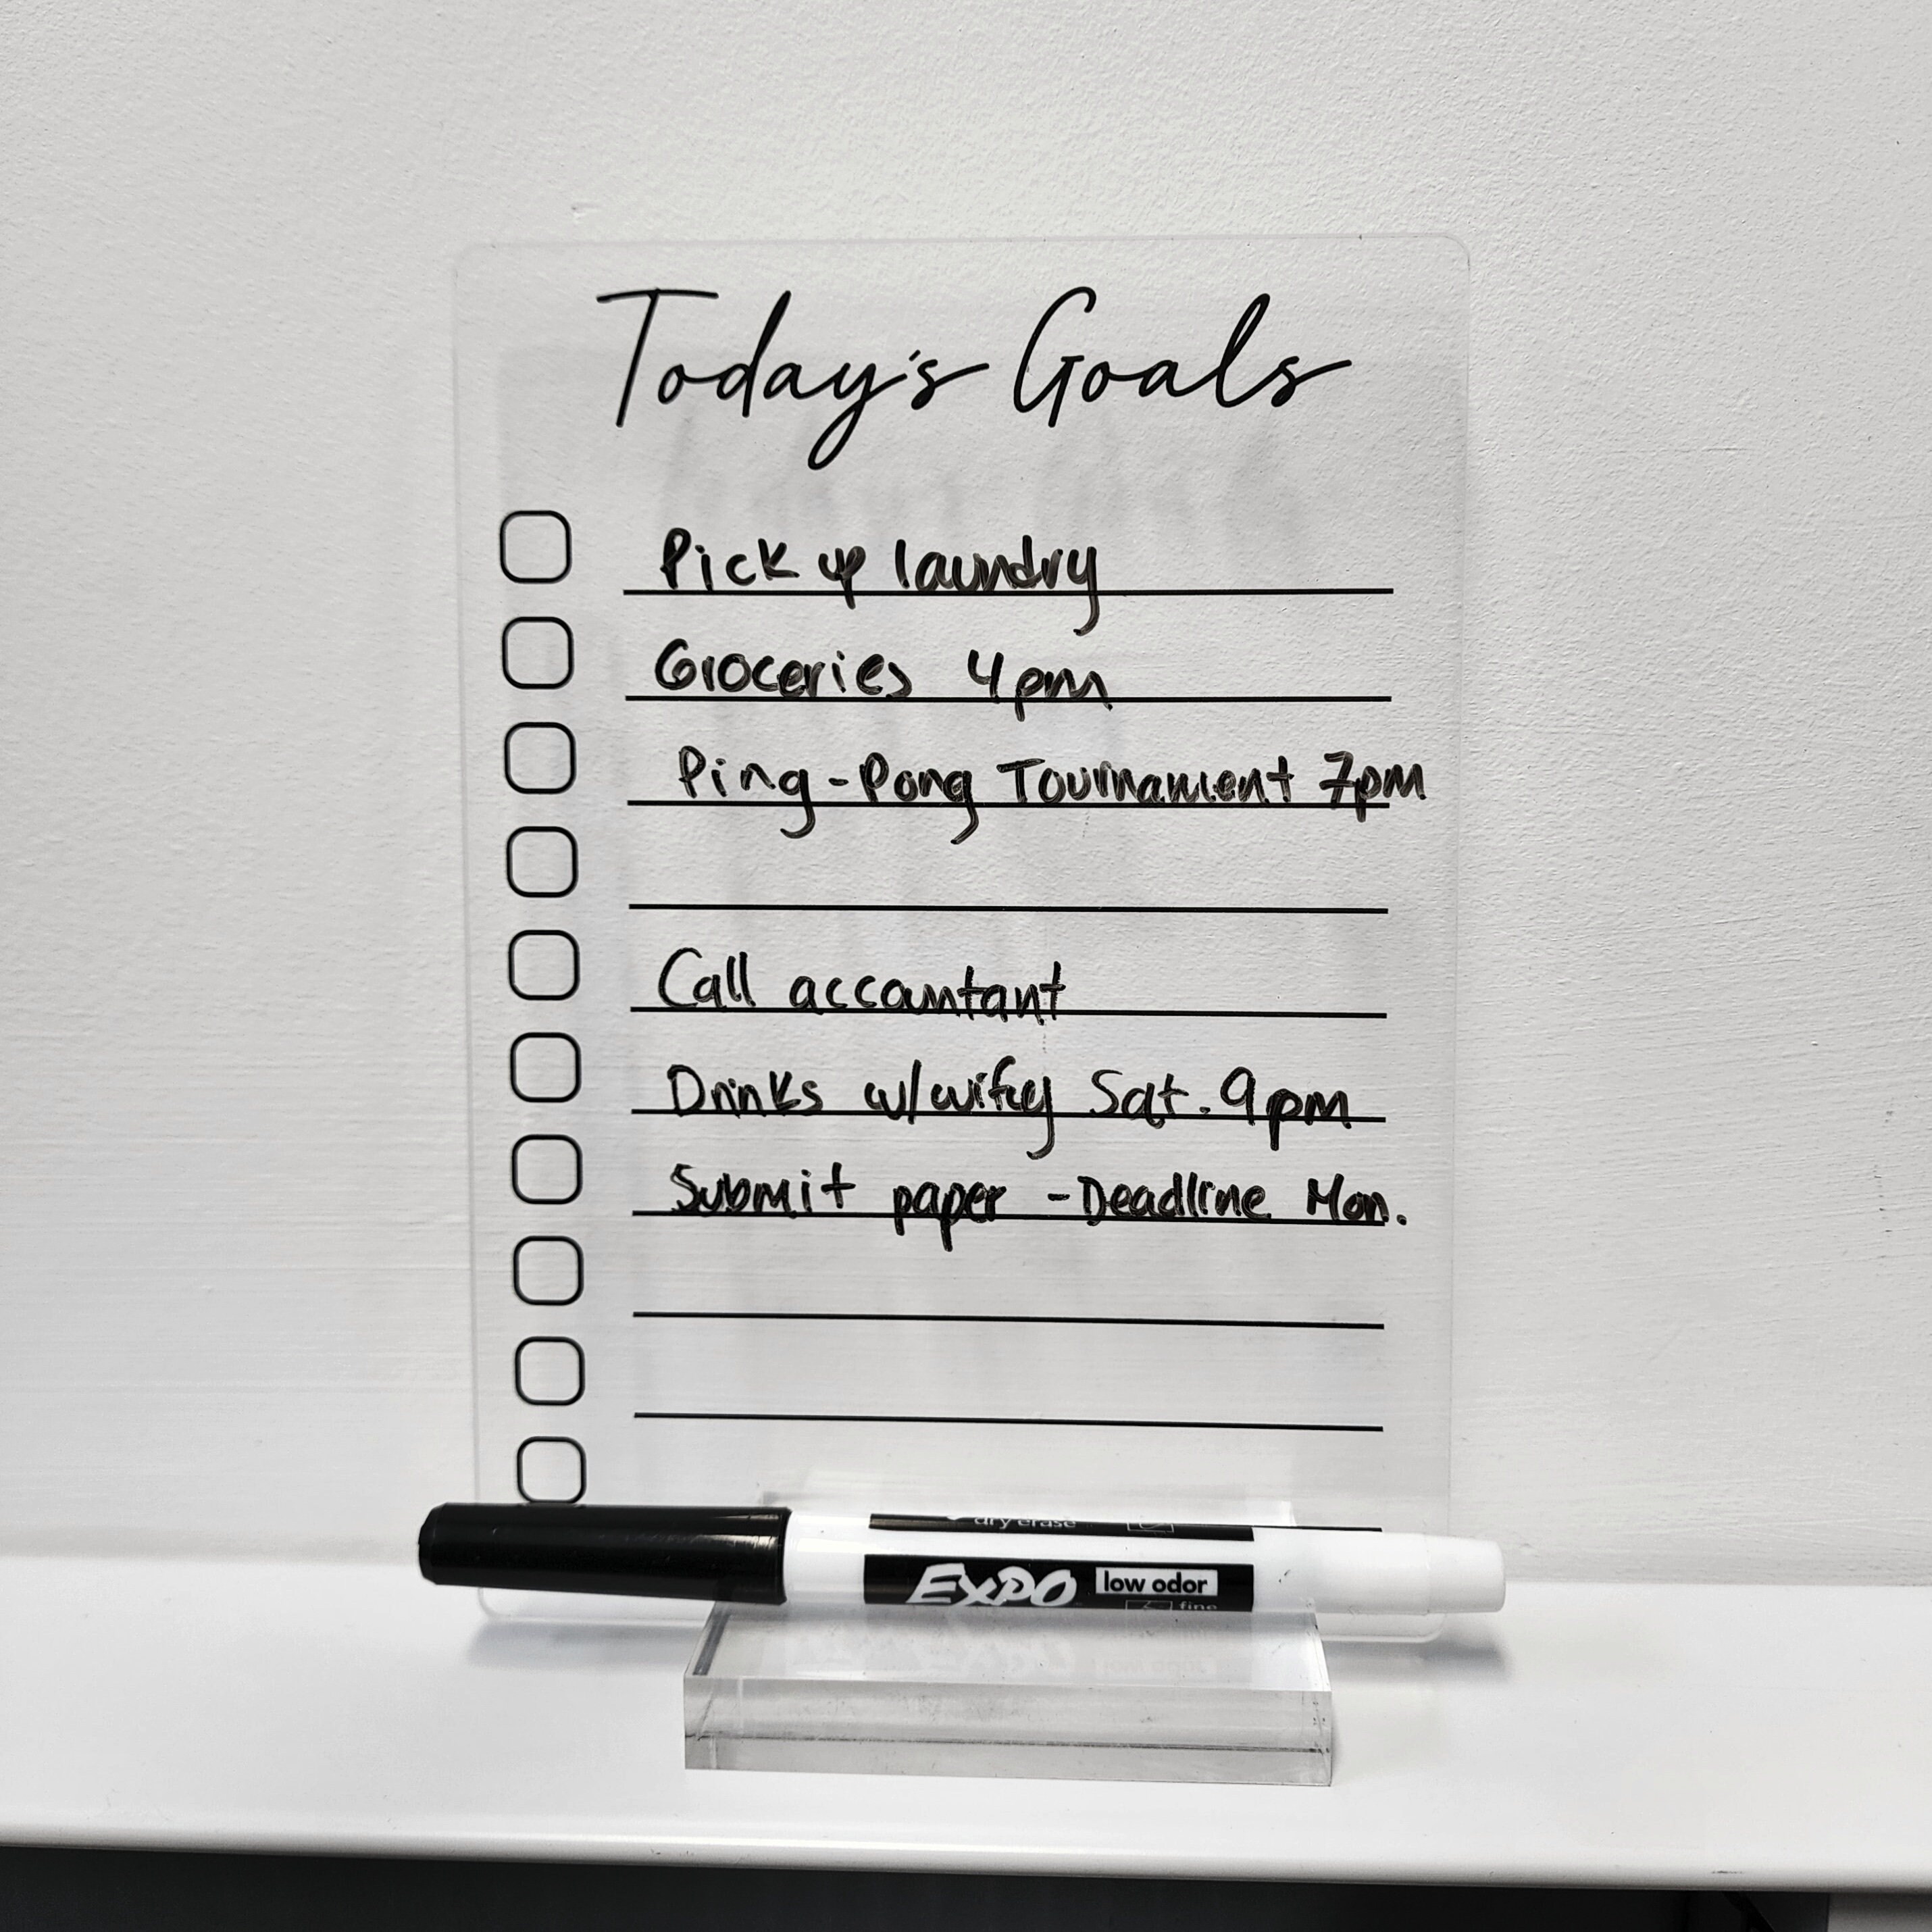 Today's Goals
Pick up laundry
Groceries 4pm
Ping-Pong Tournament 7pm
Call accountant
Drinks w/wifey Sat. 9pm
Submit paper - Deadline Mon.
dry erase
EXPO low odor
fine